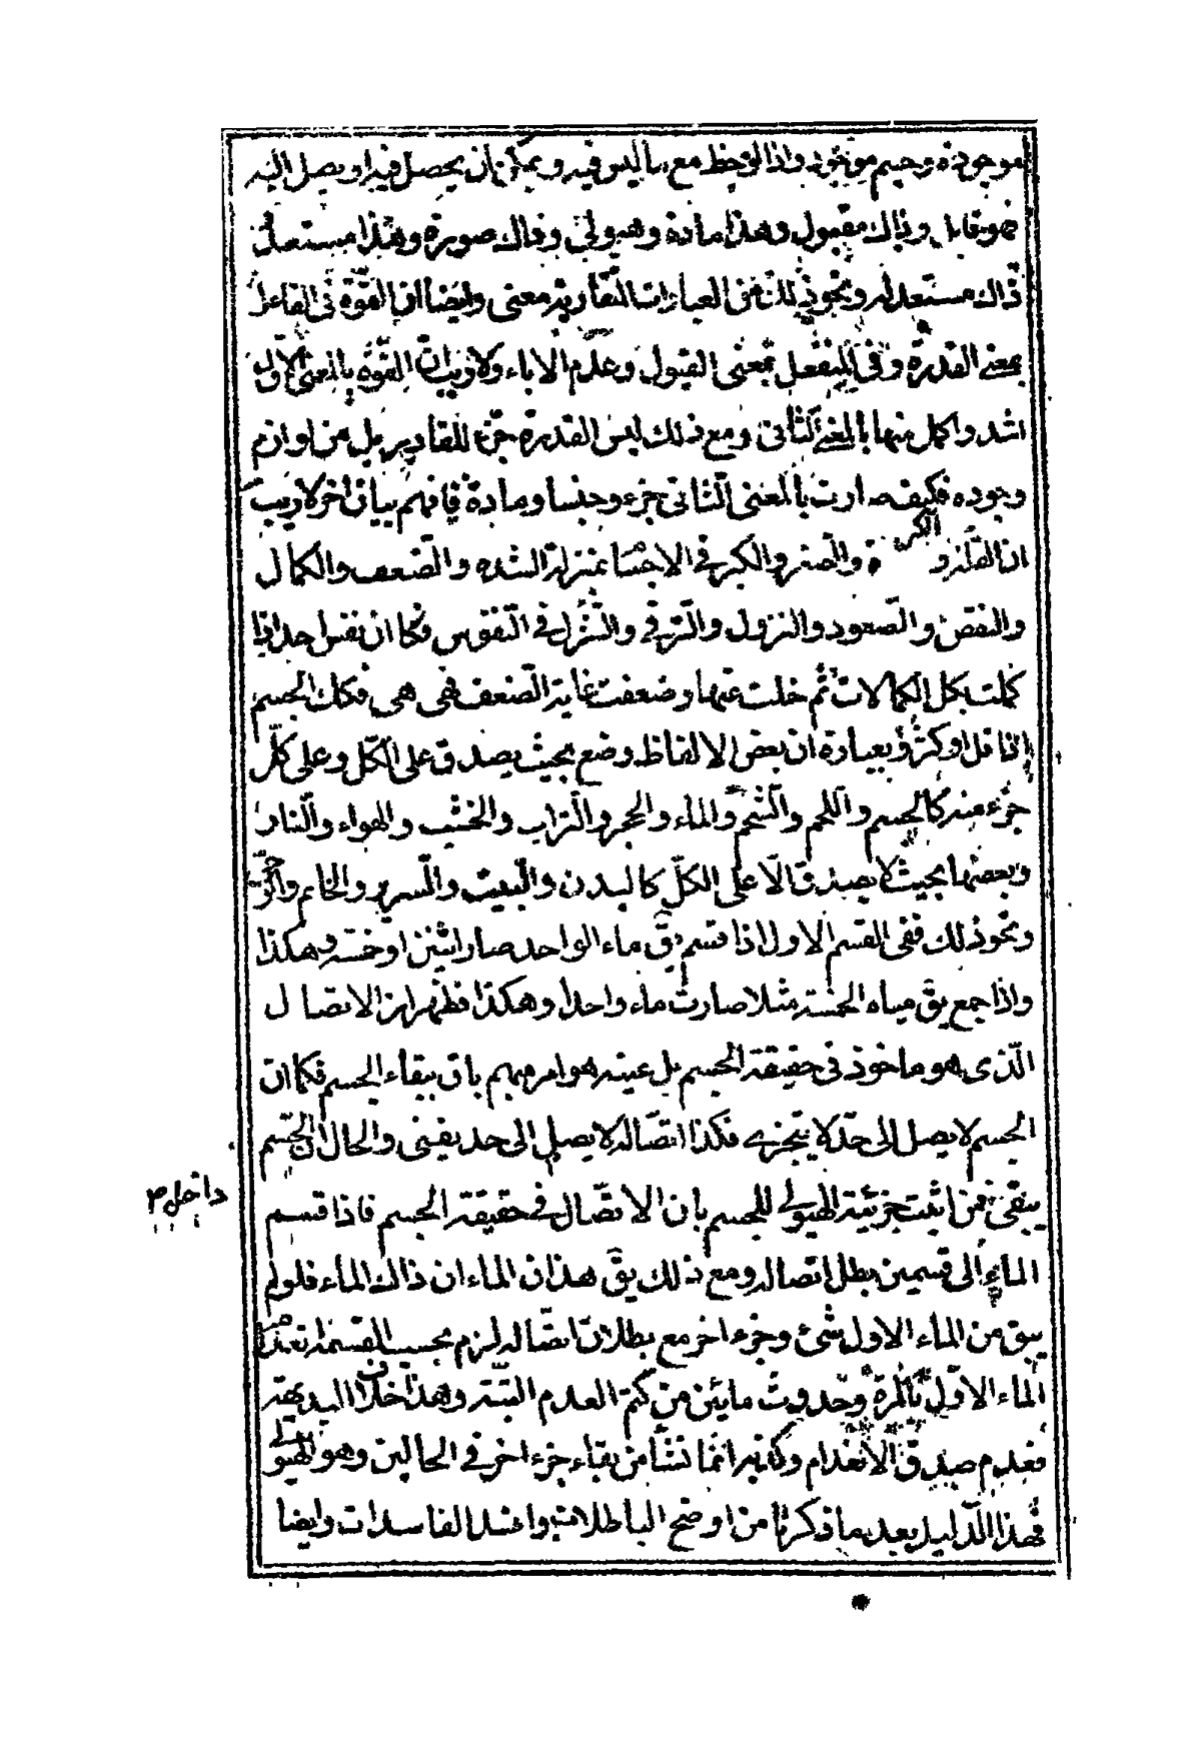 موجودة وجسم موجود واذا لوحظ مع ما ليس فيه ويمكن ان يحصل فيه او يصل اليه
فهو قابل وذاك مقبول وهذا مادة وهيولى وذاك صورة وهذا مستعد
ذاك مستعد له ونحو ذلك من العبارات المتقاربة معنى وايضا ان القوّة فى الفاعل
بمعنى القدرة وفى المنفعل بمعنى القبول وعدم الاباء ولا ريب انّ القوّة بالمعنى الاوّل
اشد واكمل منها بالمعنى الثانى ومع ذلك ليس القدرة جزء للقادر بل من لوازم
وجوده فكيف صارت بالمعنى الثانى جزء وجنسا ومادة فافهم بيان اخر لا ريب
ان القلة و الكثرة والصغر والكبر فى الاجسا بمنزلة الشده والضعف والكمال
والنقص والصّعود والنزول والترقى والتنزل فى النفوس فكما ان نفس احد اذا
كملت بكل الكمالات ثم خلت عنها وضعفت غاية الضعف فهى هى فكك الجسم
اذا قل او كثر وبعبارة ان بعض الالفاظ وضع بحيث يصدق على الكلّ وعلى كلّ
جزء منه كالجسم واللحم والشحم والماء والحجر والتراب والخشب والهواء والنار
وبعضها بحيث لا يصدق الّا على الكلّ كالبدن والبيت والسرير والخاتم
ونحو ذلك ففى القسم الاول اذا قسم يقّ ماء الواحد صار اثنين او خمسة وهكذا
واذا جمع يقّ مياه الخمسة مثلا صارت ماء واحدا وهكذا فظهر ان الاتصال
الّذى هو ماخوذ فى حقيقة الجسم بل عينه هو امر مبهم باق ببقاء الجسم فكما ان
الجسم لا يصل الى حدّ لا يتجزى فكذا اتصاله لا يصل الى حد يفنى والحال ان الجسم
يبقى فمن اثبت جزئية الهيولى للجسم بان الاتّصال فى حقيقة الجسم فاذا قسم
داخل ٣
الماء الى قسمين بطل اتصاله ومع ذلك يقّ هذان الماء ان ذاك الماء فلو لم
يبق من الماء الاول شئ وجزء اخر مع بطلان اتصاله لزم بحسب القسمة
الماء الاوّل بالمرة وحدوث مائين من كتم العدم البتة وهذا خلاف البديهة
فعدم صدق الانعدام وكذبه انما نشأ من بقاء جزء اخر فى الحالين وهو الهيولى
فهذا الدليل بعد ما ذكرنا من اوضح الباطلات وافسد الفاسدات وايضا